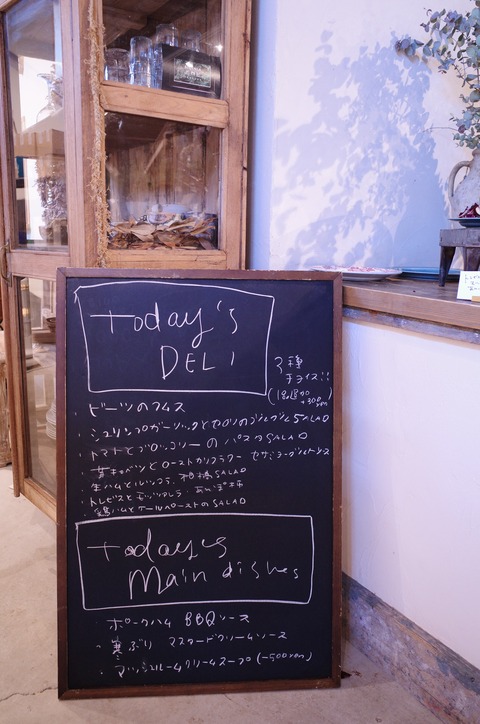 Today's
DELI
3種
チョイス!!
(1品追加
+300yen)
・ビーツのフムス
・シュリンプガーリックとセロリの SALAD
・トマトとブロッコリーのパスタSALAD
・芽キャベツとローストカリフラワー セサミヨーグルトソース
・生ハムとルッコラ、 SALAD
・トレビスとモッツァレラ、あんぽ柿
・鶏ハムとケールペーストのSALAD
Today's
Main dishes
・ポークハム BBQソース
・寒ぶり マスタードクリームソース
・マッシュルームクリームスープ(-500yen)